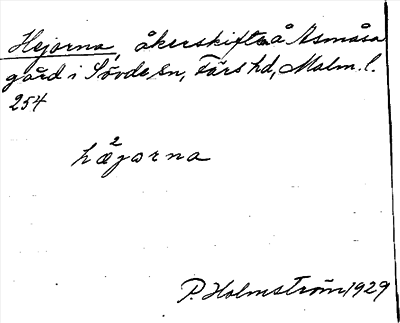 Hejorna, åkerskifte å Åsmåsa
gård i Sövde sn, Färs hd, Malm. l.
254
hæ²jorna
P. Holmström 1929